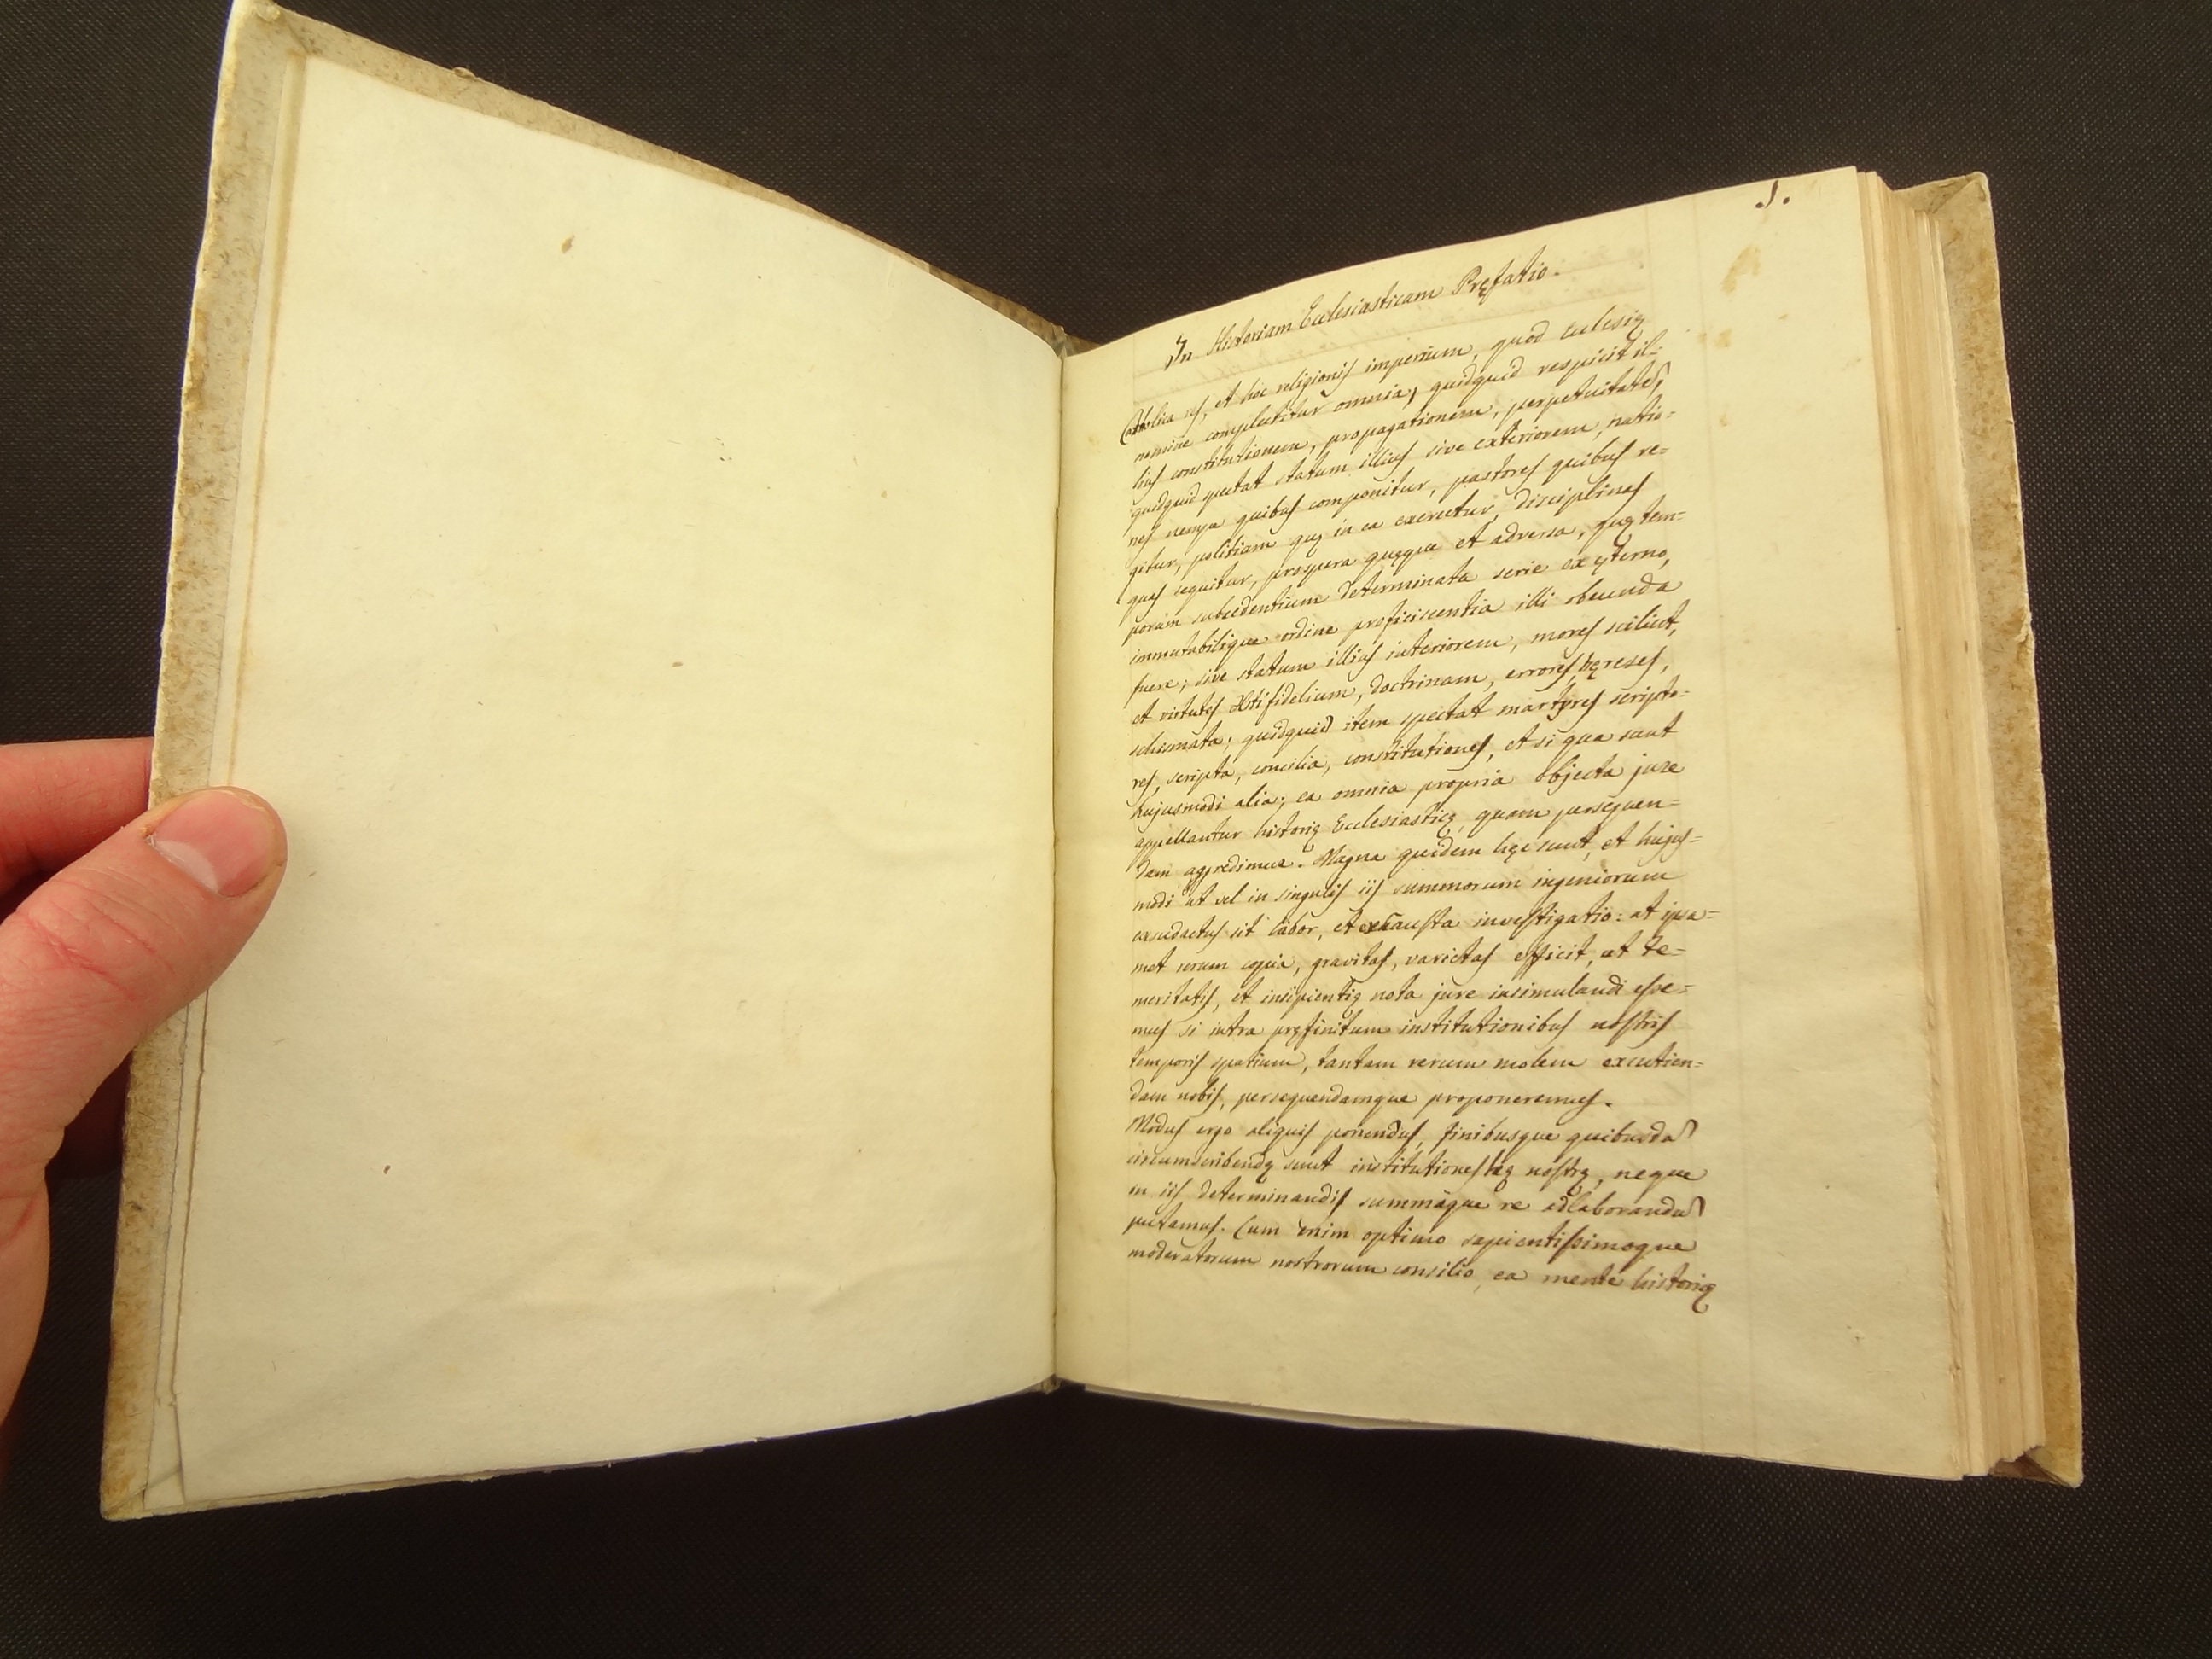 1.
In Historiam Ecclesiasticam Pręfatio.
Catholica res, et hoc religionis imperium, quod ecclesię
nomine complectitur omnia, quidquid respicit il=
lius constitutionem, propagationem, perpetuitatē,
quidquid spectat statum illius sive exteriorem, natio=
nes nempe quibus componitur, pastores quibus re=
gitur, politiam quę in ea exercetur, disciplinas
quas sequitur, prospera quęque et adversa, quę tem=
porum succedentium determinata serie ex ęterno,
immutabilique ordine proficiscentia illi obeunda
fuere; sive statum illius interiorem, mores scilicet,
et virtutes Xti fidelium, doctrinam, errores, hęreses,
schismata; quidquid item spectat martyres scripto=
res, scripta, concilia, constitutiones, et si qua sunt
hujusmodi alia; ea omnia propria objecta jure
appellantur historię Ecclesiasticę, quam persequen=
dam aggredimur. Magna quidem hęc sunt, et hujus=
modi ut vel in singulis iis summorum ingeniorum
exsudactus sit labor, et exhausta investigatio: at ipsa=
met rerum copia, gravitas, varietas efficit, ut te=
meritatis, et insipientię nota jure insimulandi esse=
mus si intra pręfinitum institutionibus nostris
temporis spatium, tantam rerum molem excutien=
dam nobis, persequendamque proponeremus.
Modus ergo aliquis ponendus, finibusque quibusdā
circumscribendę sunt institutiones hę nostrę, neque
in iis determinandis summaque re adlaborandū
putamus. Cum enim optimo sapientissimoque
moderatorum nostrorum consilio, ea mente historię